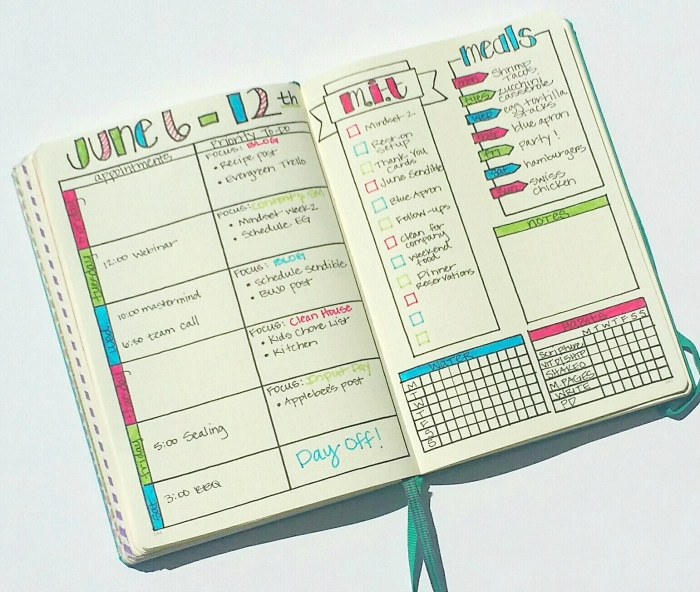 June 6 - 12th
appointments
Priority To-Do
Monday
FOCUS: BLOG
• Recipe post
• Evergreen Trello
Tuesday
12:00 Webinar
FOCUS: Content/SM
• Mindset Week 2
• Schedule EG
Wed
10:00 mastermind
6:30 team call
FOCUS: BLOG
• Schedule Sendible
• BUJO post
Thursday
FOCUS: Clean House
• Kids Chore List
• Kitchen
Friday
5:00 Sealing
FOCUS: Input Day
• Applebee's post
Sat
3:00 BBQ
Day Off!
m.i.t
Mindset 2
Rest-on
setup
Thank You
Cards
June Sendible
Blue Apron
Follow-ups
Clean for
company
Weekend
food
Dinner
Reservations
meals
mon
shrimp
tacos
tues
zucchini
casserole
wed
egg tortilla
stacks
thur
blue apron
fri
party!
sat
hamburgers
sun
swiss
chicken
notes
Water
M
T
W
T
F
S
S
Habits
M T W T F S S
Scripture
WORSHIP
SHAKEO
M. PAGES
WRITE
PP